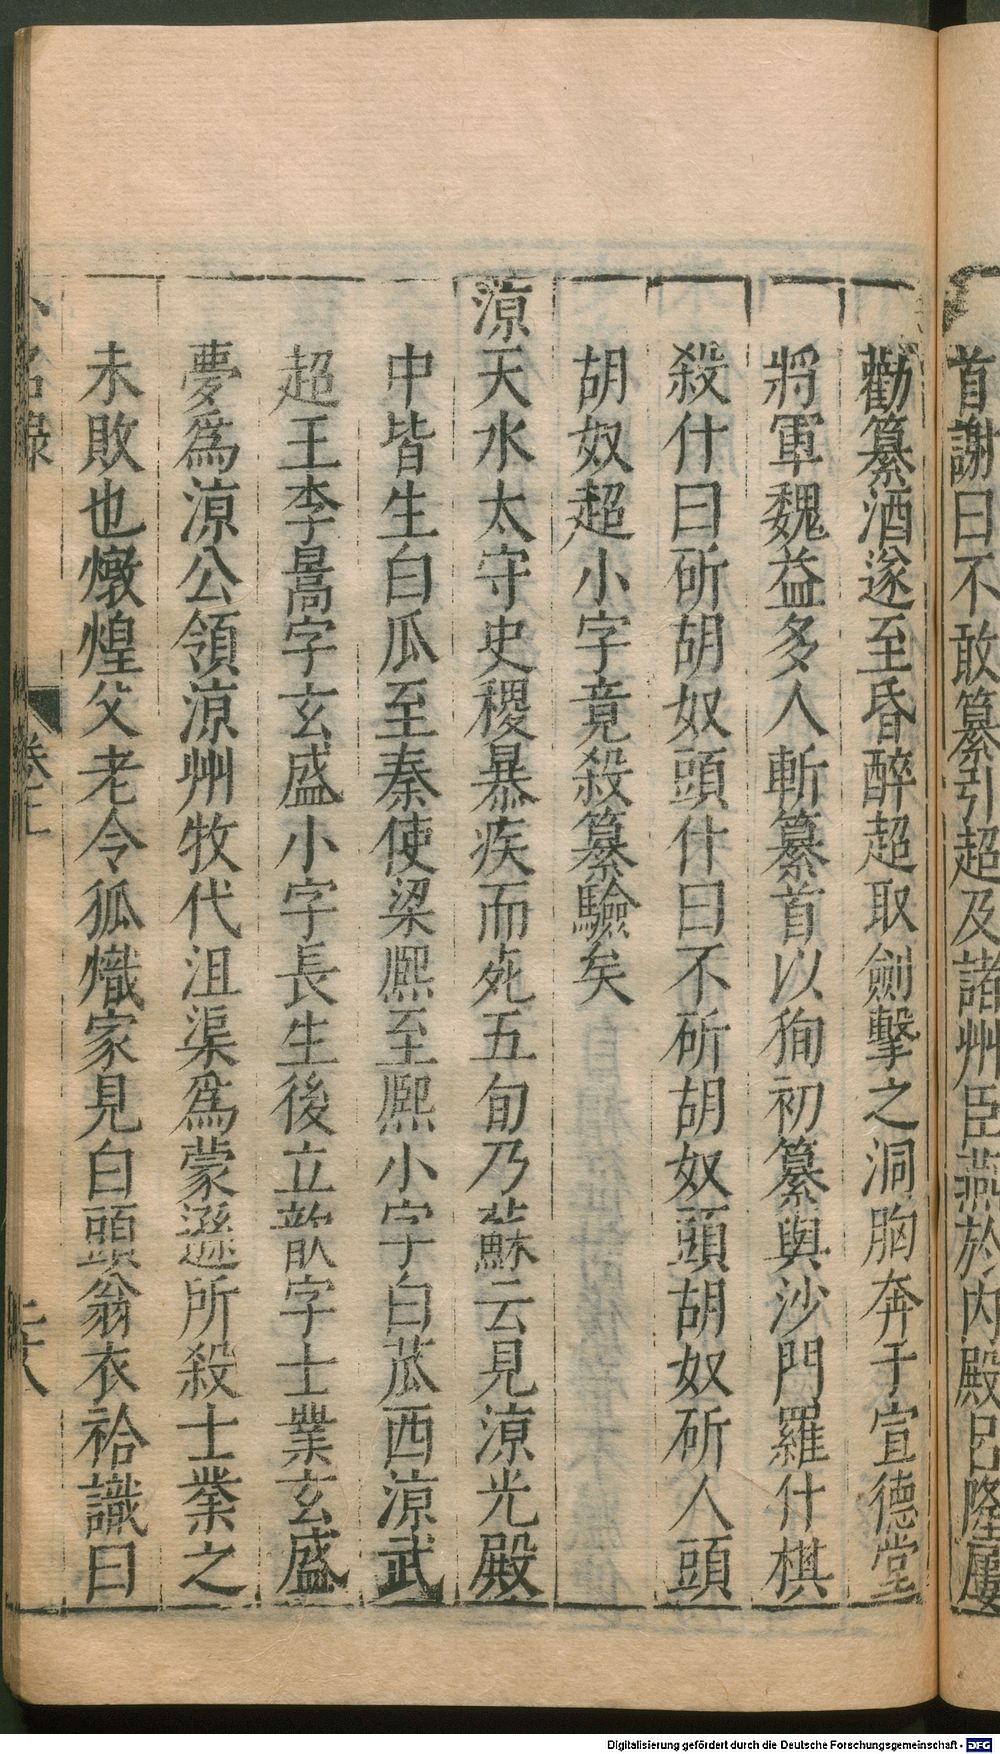 首謝曰不敢纂引超及諸州臣燕於內殿呂隆屢
勸纂酒遂至昏醉超取劍擊之洞胸奔于宣德堂
將軍魏益多人斬纂首以狥初纂與沙門羅什棋
殺什曰斫胡奴頭什曰不斫胡奴頭胡奴斫人頭
胡奴超小字竟殺纂驗矣
涼天水太守史稷暴疾而死五旬乃蘇云見涼光殿
中皆生白瓜至秦使梁熙至熙小字白苽西涼武
超王李暠字玄盛小字長生後立歆字士業玄盛
夢爲涼公領涼州牧代沮渠爲蒙遜所殺士業之
未敗也燉煌父老令狐熾家見白頭翁衣袷識曰
小名錄
卷上
二十八
Digitalisierung gefördert durch die Deutsche Forschungsgemeinschaft - DFG